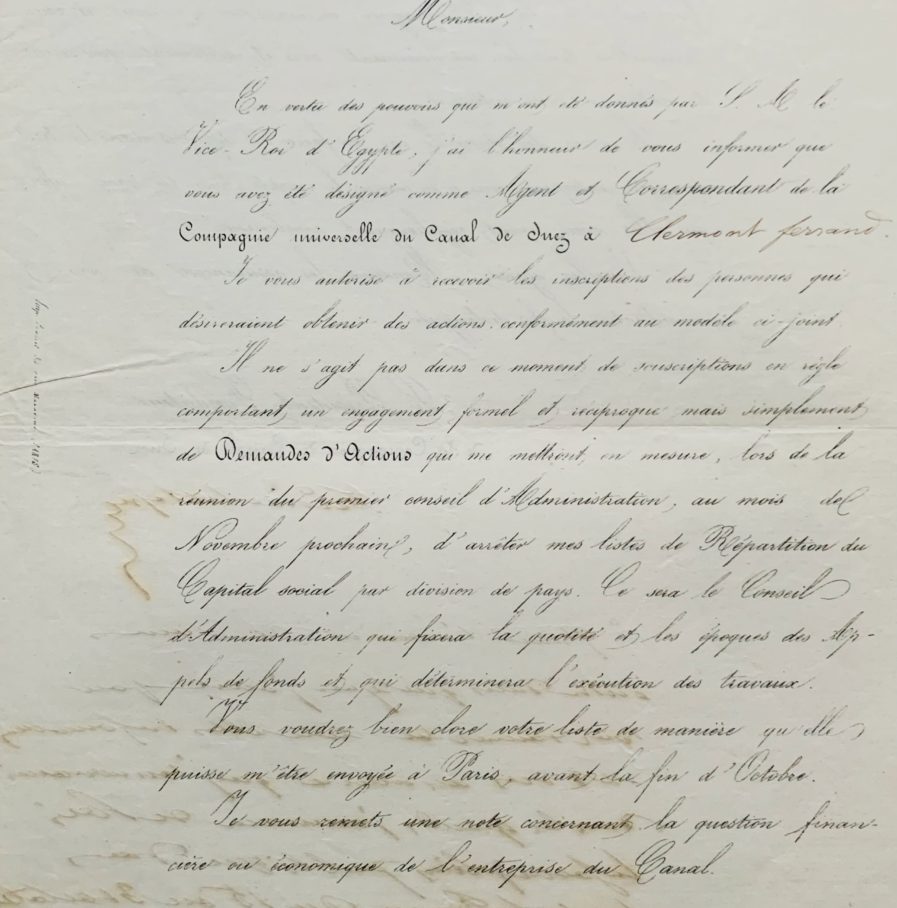 Monsieur,
En vertu des pouvoirs qui m'ont été donnés par S. M. le
Vice-Roi d'Egypte, j'ai l'honneur de vous informer que
vous avez été désigné comme Agent et Correspondant de la
Compagnie universelle du Canal de Suez à Clermont ferrand.
Je vous autorise à recevoir les inscriptions des personnes qui
désireraient obtenir des actions conformément au modèle ci-joint.
Il ne s'agit pas dans ce moment de souscriptions en règle
comportant un engagement formel et réciproque mais simplement
de Demandes d'Actions qui me mettront en mesure, lors de la
réunion du premier conseil d'Administration, au mois de
Novembre prochain, d'arrêter mes listes de Répartition du
Capital social par division de pays. Ce sera le Conseil
d'Administration qui fixera la quotité et les époques des Ap-
pels de fonds et qui déterminera l'exécution des travaux.
Vous voudrez bien clore votre liste de manière qu'elle
puisse m'être envoyée à Paris, avant la fin d'Octobre.
Je vous remets une note concernant la question finan-
cière ou économique de l'entreprise du Canal.